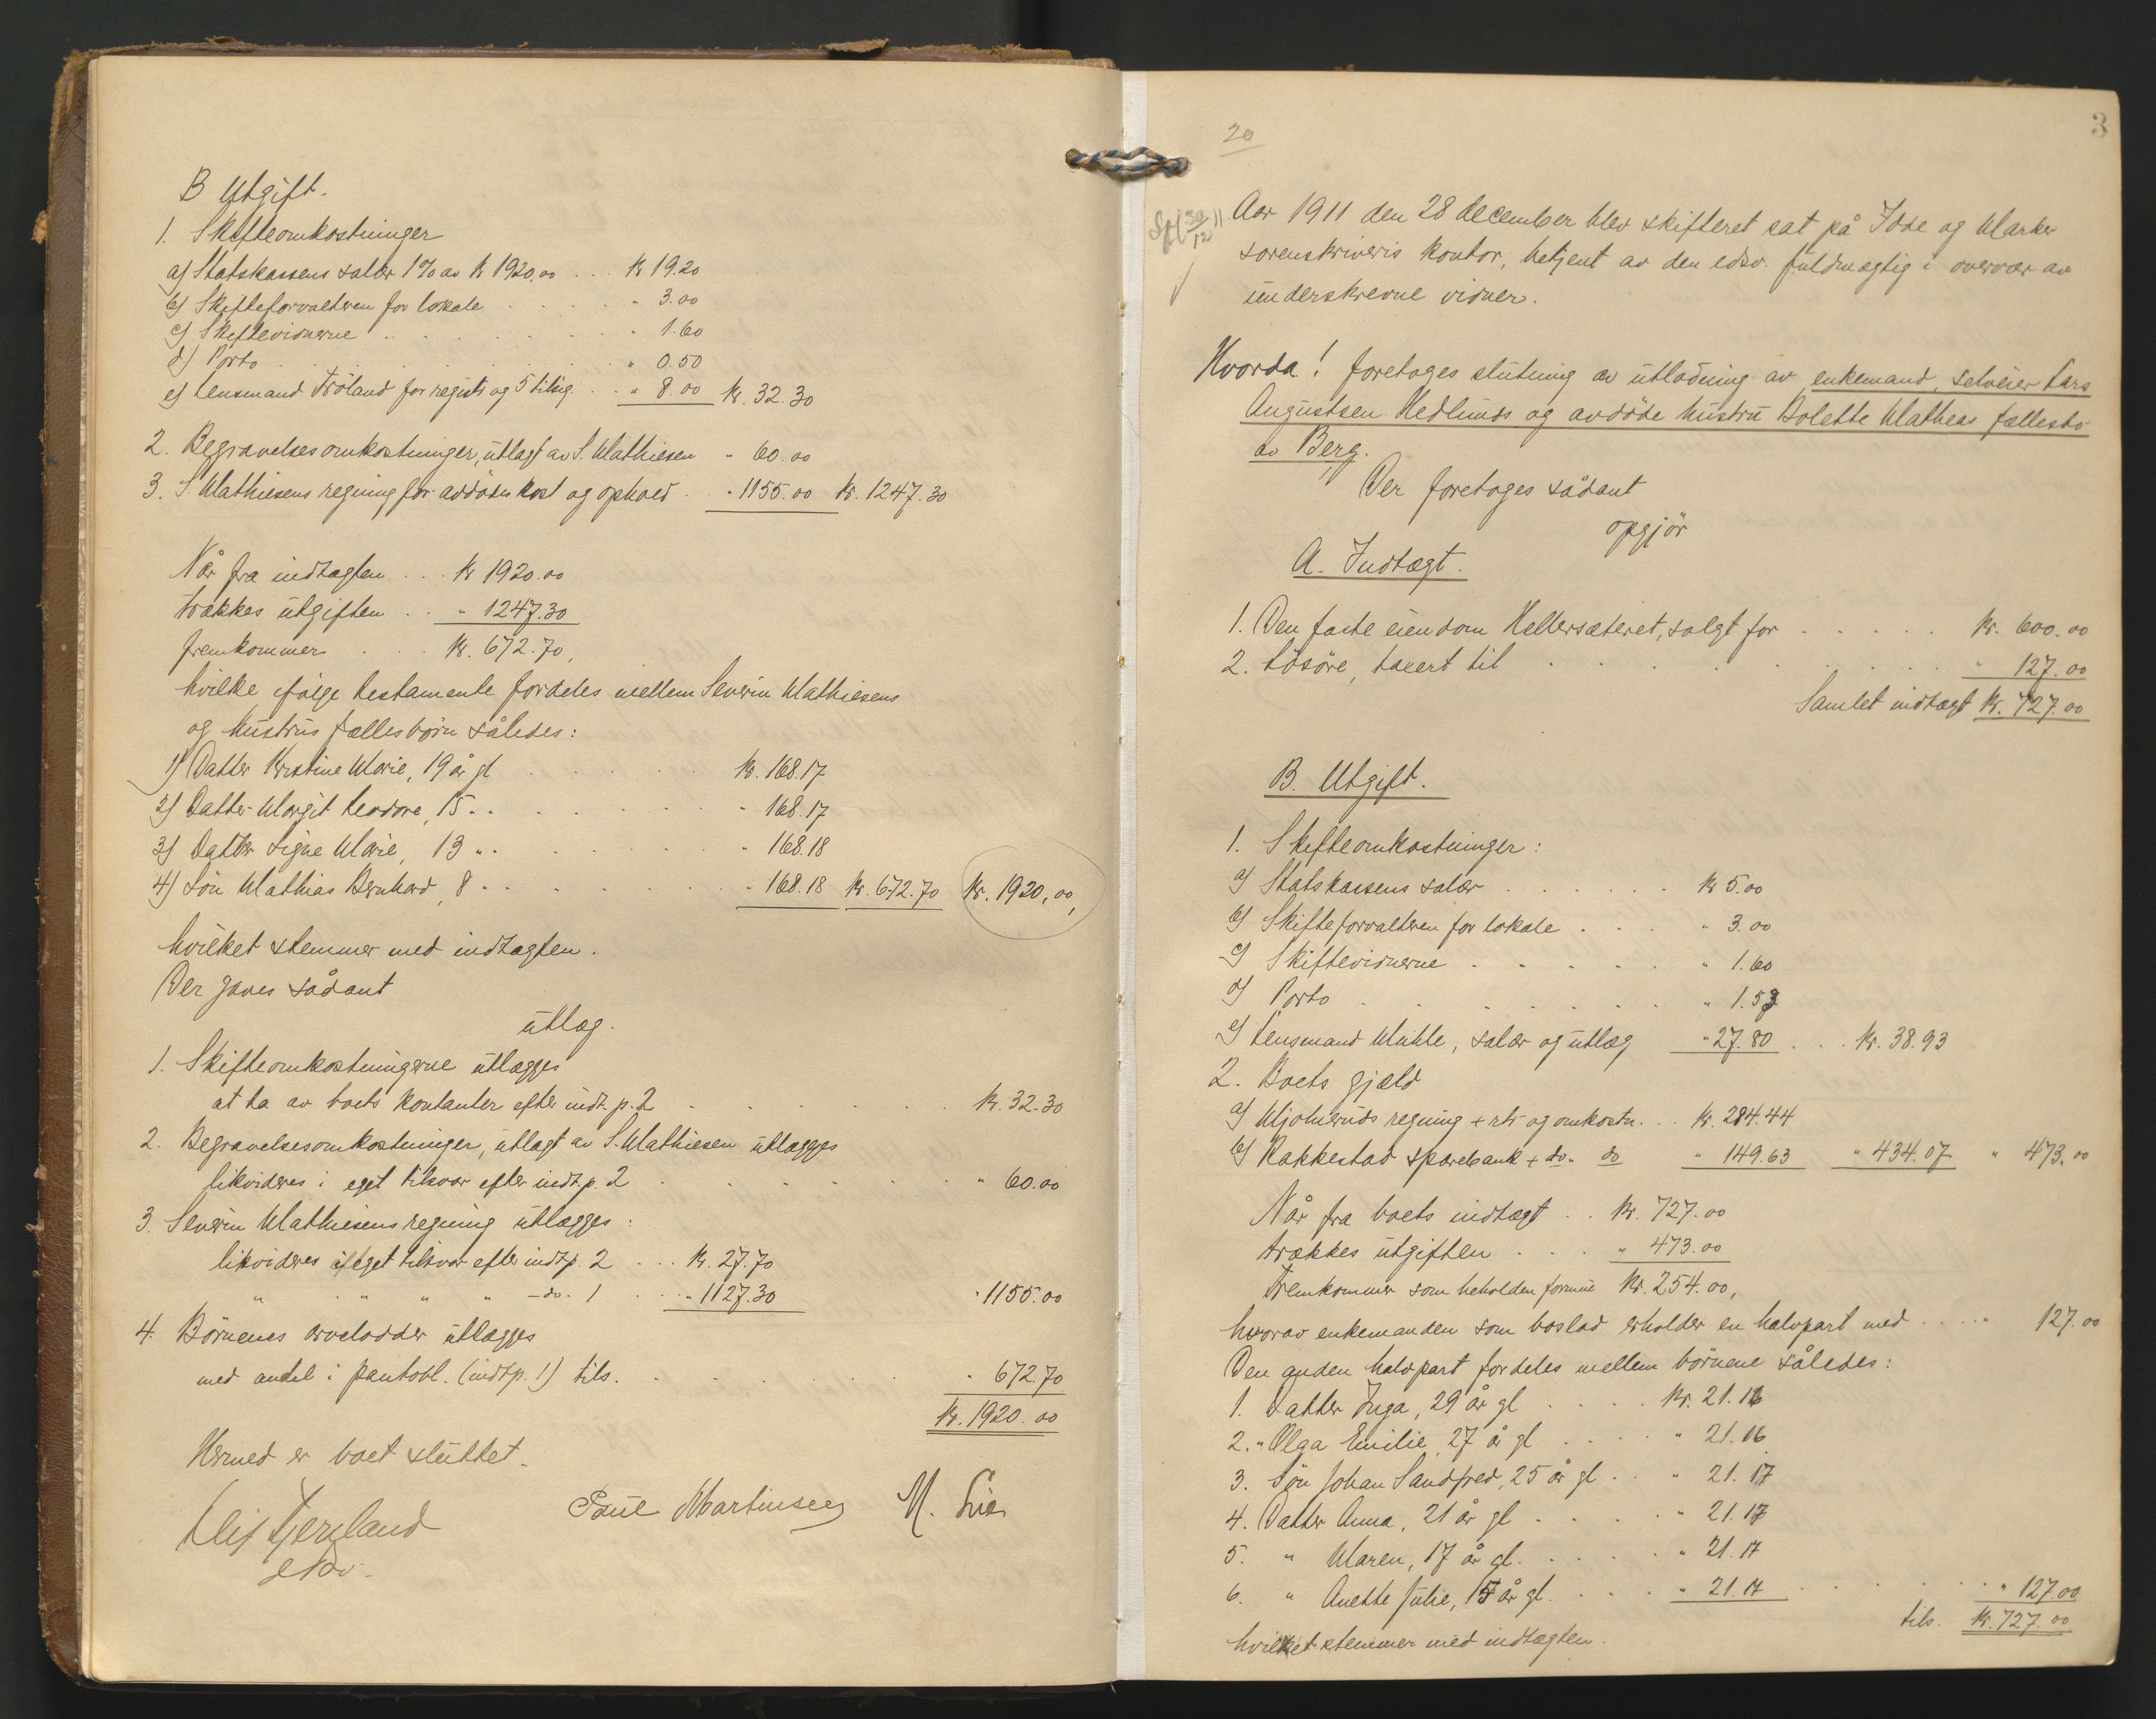 B Utgift.
1. Skifteomkostninger
a) Statskassens salær 1% av kr 1920.00 ... kr 19.20
b) Skifteforvalteren for lokale . . . " 3.00
c) Skiftevidnerne . . . " 1.60
d) Porto . . . " 0.50
e) Lensmand Tröland for registr og 5 tilsig. . . " 8.00 kr. 32.30
2. Begravelsesomkostninger, utlagt av S. Mathiesen " 60.00
3. S. Mathiesens regning for avdødes kost og ophold . . " 1155.00 kr. 1247.30
Når fra indtægten . . . kr 1920.00
trækkes utgiften . . " 1247.30
fremkommer . . . kr. 672.70,
hvilke ifølge testamente fordeles mellem Severin Mathiesens
og hustrus fællesbörn således:
1) Datter Kristine Marie, 19 år gl . . . kr. 168.17
2) Datter Margit Leodore, 15 " " . . . " 168.17
3) Datter Signe Marie, 13 " " . . . " 168.18
4) Sön Mathias Bernhard, 8 " " . . . " 168.18 kr. 672.70 kr. 1920,00,
hvilket stemmer med indtægten.
Der gaves sådant
utlæg.
1. Skifteomkostningerne utlægges
at ta av boets kontanter efter indt. p. 2 . . . kr. 32.30
2. Begravelsesomkostninger, utlagt av S. Mathiesen utlægges
likvideres i eget tilsvar efter indt.p. 2 . . . " 60.00
3. Severin Mathiesens regning utlægges:
likvideres i eget tilsvar efter indt.p. 2 . . . kr. 27.70
" " " " - do. 1 . . . " 1127.30 " 1155.00
4. Börnenes arvelodder utlægges
med andel i pantobl. (indt.p. 1) tils. . . . " 672.70
kr. 1920.00
Hermed er boet sluttet.
Paul Martinsen M. Lie
edsv.
3
20
30/12 11
Aar 1911 den 28 december blev skifteret sat på Idde og Marker
sorenskriveris kontor, betjent av den edsv. fuldmægtig i overvær av
underskrevne vidner.
Hvorda! foretages slutning av utlodning av enkemand, selveier Lars
Augustsen Hedlunds og avdöde hustru Bolette Matheas fællesbo
av Berg.
Der foretages sådant
opgjör
A. Indtægt.
1. Den faste eiendom Hellersæteret, solgt for . . . kr. 600.00
2. Lösöre, taxert til . . . " 127.00
Samlet indtægt kr. 727.00
B. Utgift.
1. Skifteomkostninger:
a) Statskassens salær . . . kr 5.00
b) Skifteforvalteren for lokale . . . " 3.00
c) Skiftevidnerne . . . " 1.60
d) Porto . . . " 1.53
e) Lensmand Muhle, salær og utlæg " 27.80 . . . kr. 38.93
2. Boets gjæld
a) regning + rtr og omkostn. . . kr. 284.44
b) Rakkestad sparebank + do " do " 149.63 " 434.07 " 473.00
Når fra boets indtægt . . kr. 727.00
trækkes utgiften . . . " 473.00
fremkommer som beholden formue kr. 254.00,
hvorav enkemanden som boslod erholder en halvpart med . . . " 127.00
Den anden halvpart fordeles mellem börnene således:
1. Datter Inga, 29 år gl . . . kr. 21.16
2. " Olga Emilie, 27 år gl . . . " 21.16
3. Sön Johan Sandfred, 25 år gl . . " 21.17
4. Datter Anna, 21 år gl . . . " 21.17
5. " Maren, 17 år gl. . . . " 21.17
6. " Anette Julie, 15 år gl. . . . " 21.17 . . . " 127.00
tils. kr. 727.00
hvilket stemmer med indtægten.